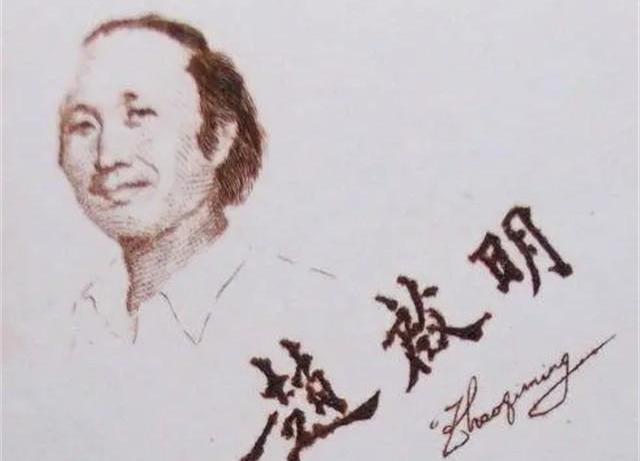 趙啟明
"Zhaoqiming